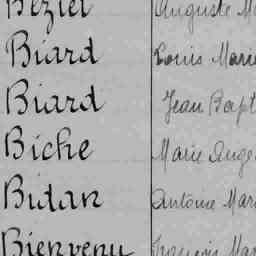 Béziel Auguste M
Biard Louis Marie
Biard Jean Bapt
Biche Marie Ange
Bidan Antoine Mar
Bienvenu François Mar